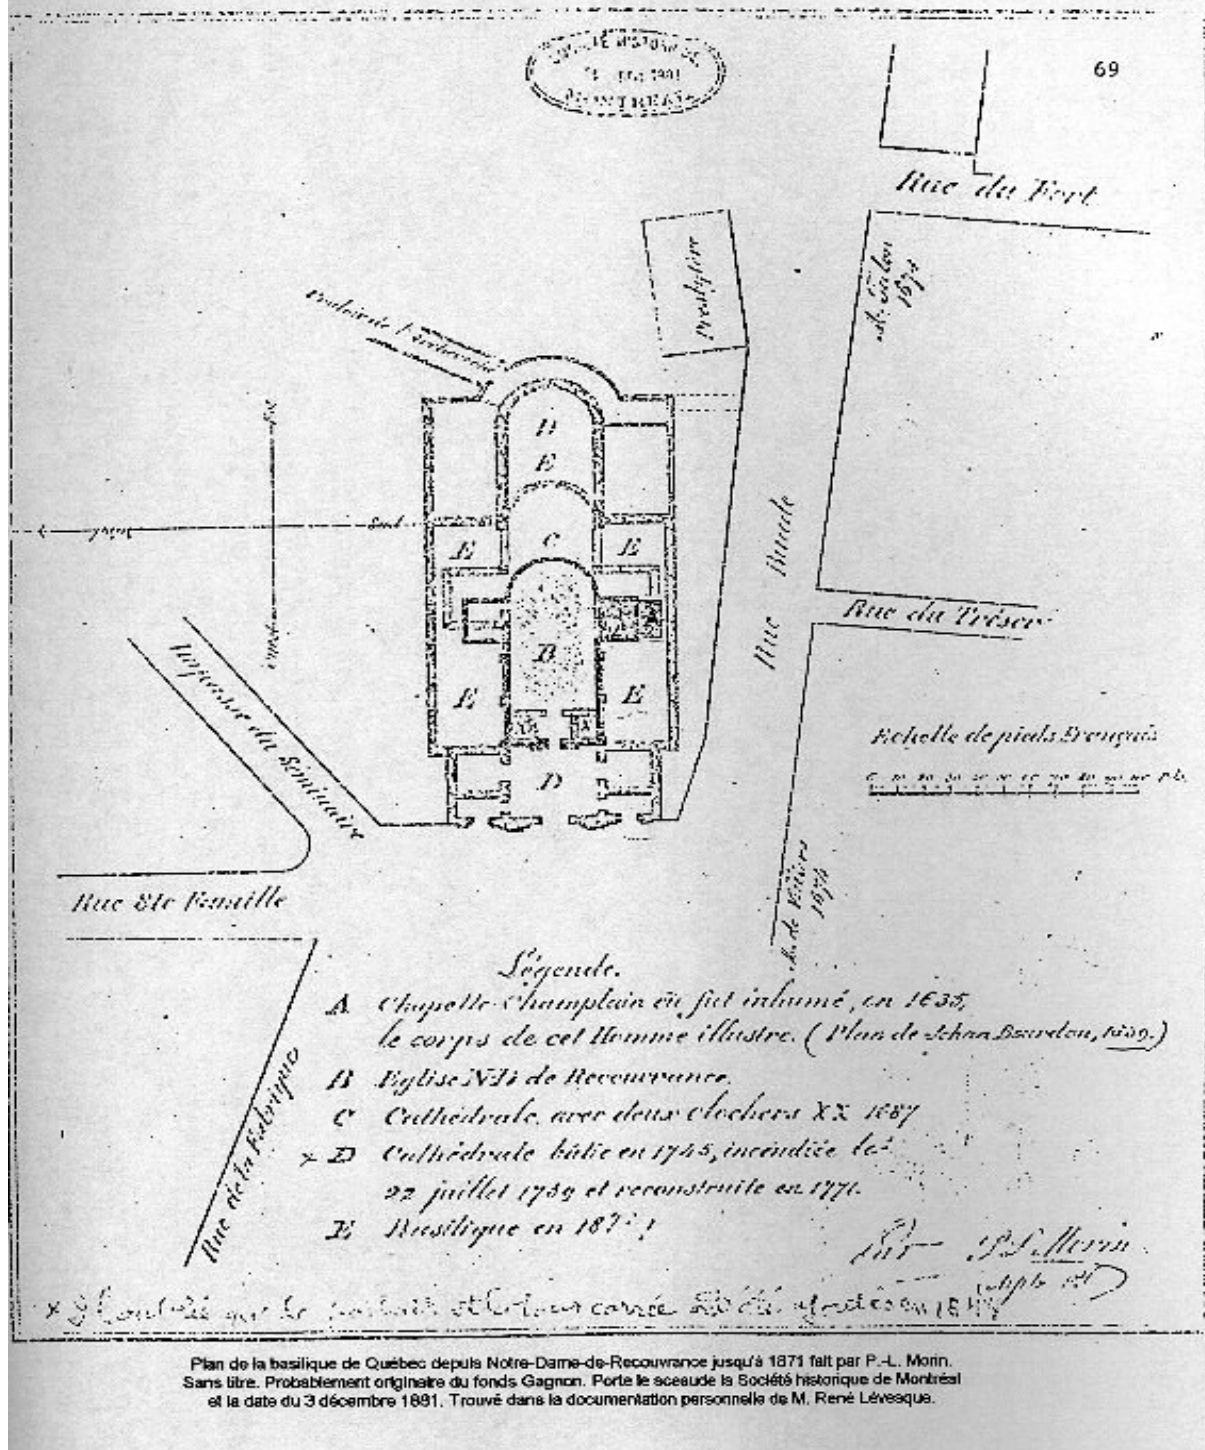 SOCIÉTÉ HISTORIQUE
MONTRÉAL
69
Rue du Fort
M. Talon
1674
Presbytère
Couloir de l'Archevêché
Est
Sud
Nord
Ouest
D
E
C
E
E
B
E
E
A
A
D
Rue Buade
Rue du Trésor
Impasse du Séminaire
Echelle de pieds Français
Rue Ste Famille
M. de Villiers
1674
Rue de la Fabrique
Légende.
A Chapelle-Champlain où fut inhumé, en 1635,
le corps de cet Homme illustre. ( Plan de Jehan Bourdon, 1639.)
B Eglise N.D. de Recouvrance.
C Cathédrale, avec deux clochers XX 1687
x D Cathédrale bâtie en 1745, incendiée le
22 juillet 1759 et reconstruite en 1771.
E Basilique en 187
Par P. L. Morin
x et la tour carrée ont été ajoutés en
Plan de la basilique de Québec depuis Notre-Dame-de-Recouvrance jusqu'à 1871 fait par P.-L. Morin.
Sans titre. Probablement originaire du fonds Gagnon. Porte le sceaude la Société historique de Montréal
et la date du 3 décembre 1881. Trouvé dans la documentation personnelle de M. René Lévesque.